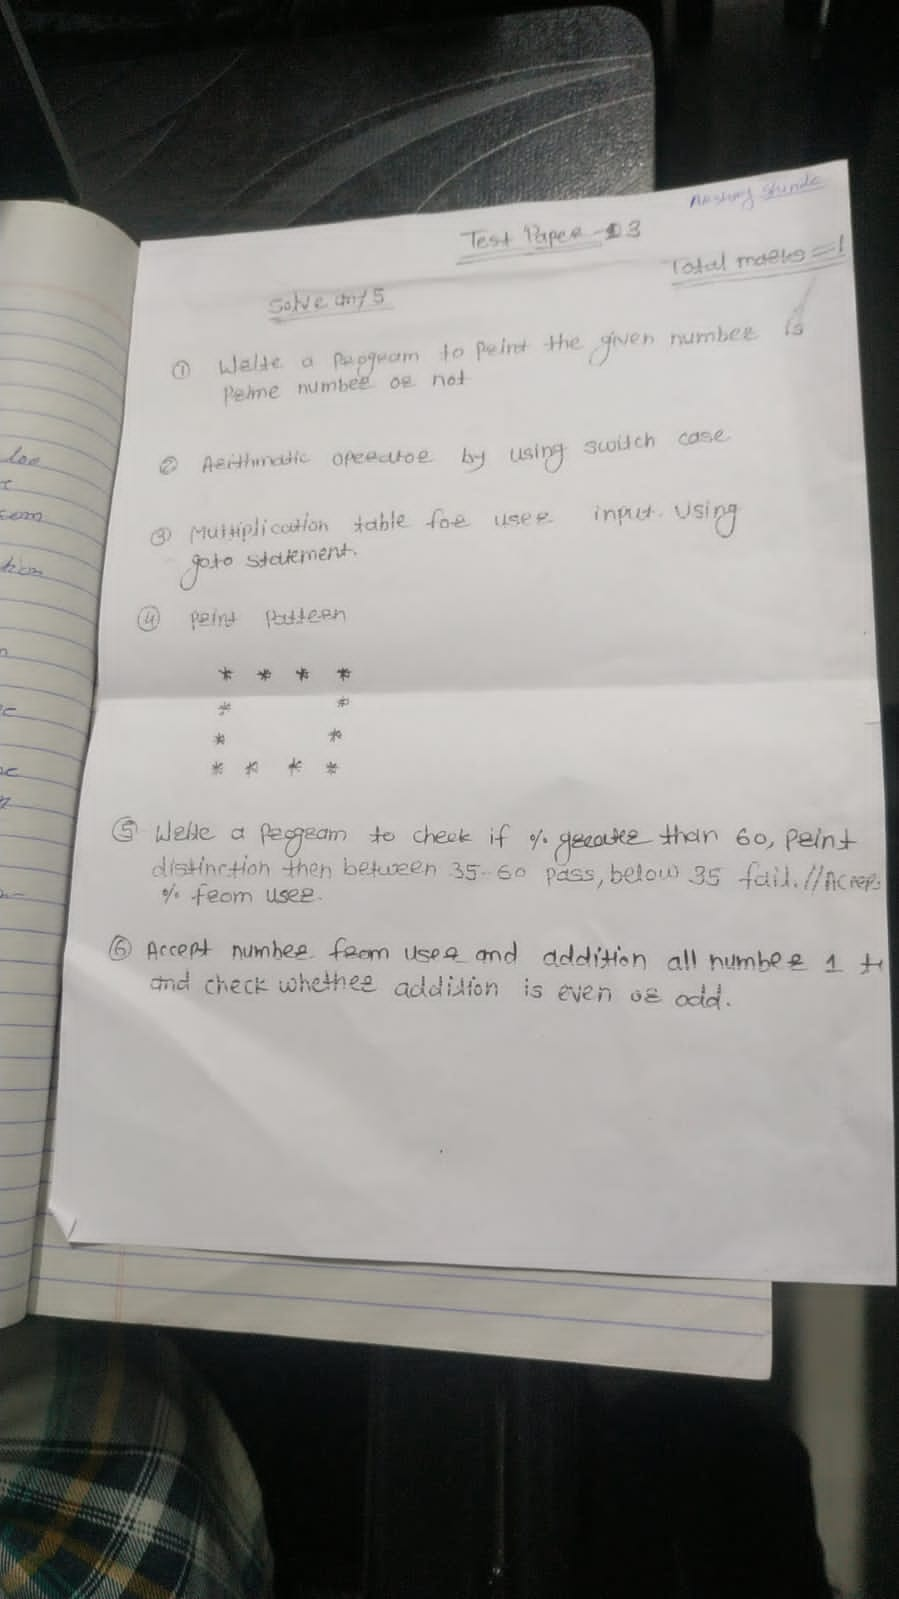 Akshay Shinde
Test Paper - 03
Total marks = 1
Solve any 5
① Write a Program to print the given number is
Prime number or not
② Arithmatic operator by using switch case
③ Multiplication table for user input. Using
goto statement.
④ Print Pattern
* * * *
* *
* *
* * * *
⑤ Write a Program to check if % greater than 60, Print
distinction then between 35-60 pass, below 35 fail. // Accep
% from user.
⑥ Accept number from user and addition all number 1 t
and check whether addition is even or odd.